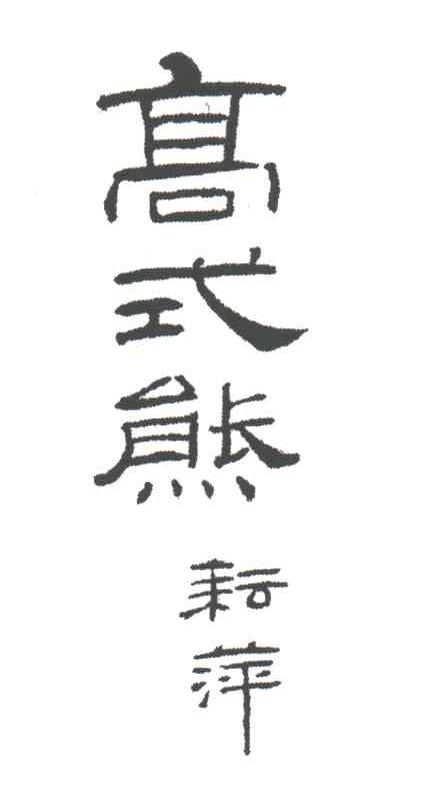 髙式熊
耘萍